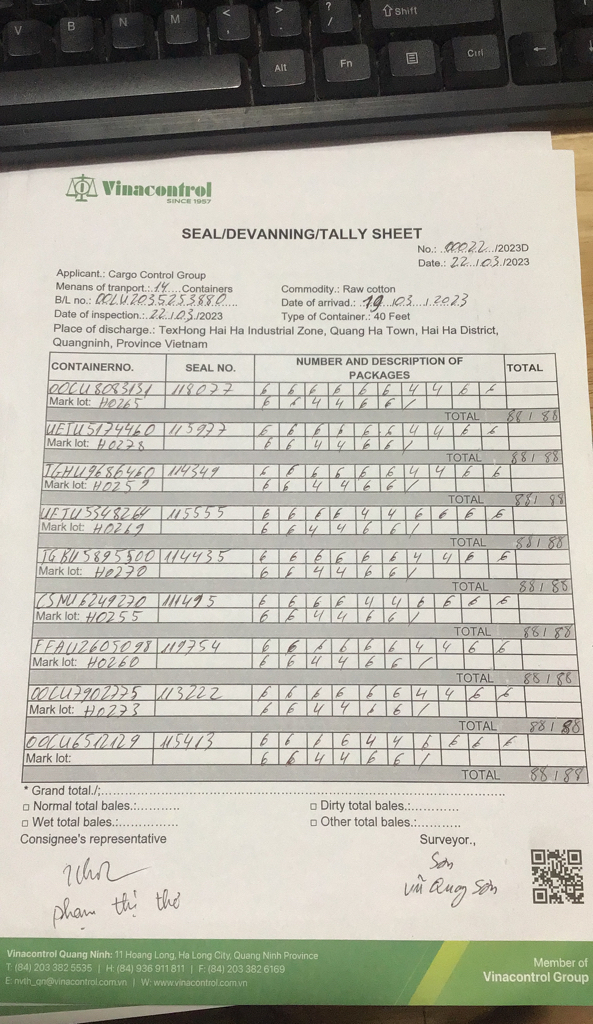 V B N M < , > . ? / Shift
Alt Fn Ctrl
Vinacontrol
SINCE 1957
SEAL/DEVANNING/TALLY SHEET
No.: 00022 /2023D
Date.: 22 /03 /2023
Applicant.: Cargo Control Group
Menans of tranport.: 14 Containers Commodity.: Raw cotton
B/L no.: OOLU2035253880 Date of arrivad.: 19 /03 /2023
Date of inspection.: 22 /03 /2023 Type of Container.: 40 Feet
Place of discharge.: TexHong Hai Ha Industrial Zone, Quang Ha Town, Hai Ha District,
Quangninh, Province Vietnam
CONTAINERNO. SEAL NO. NUMBER AND DESCRIPTION OF PACKAGES TOTAL
OOCU8083131 118077 6 6 6 6 6 6 4 4 6 6
Mark lot: H0265 6 6 4 4 6 6 /
TOTAL 88 / 88
UETU5174460 115977 6 6 6 6 6 6 4 4 6 6
Mark lot: H0278 6 6 4 4 6 6 /
TOTAL 88 / 88
TGHU9686460 114349 6 6 6 6 6 6 4 4 6 6
Mark lot: H0259 6 6 4 4 6 6 /
TOTAL 88 / 88
UETU5348264 115555 6 6 6 6 4 4 6 6 6 6
Mark lot: H0269 6 6 4 4 6 6 /
TOTAL 88 / 88
TGBU5895500 114435 6 6 6 6 6 6 4 4 6 6
Mark lot: H0270 6 6 4 4 6 6 /
TOTAL 88 / 88
CSNU6249270 111495 6 6 6 6 4 4 6 6 6 6
Mark lot: H0255 6 6 4 4 6 6 /
TOTAL 88 / 88
FFAU2605098 119754 6 6 6 6 6 6 4 4 6 6
Mark lot: H0260 6 6 4 4 6 6 /
TOTAL 88 / 88
OOCU7902775 113222 6 6 6 6 6 6 4 4 6 6
Mark lot: H0273 6 6 4 4 6 6 /
TOTAL 88 / 88
OOCU6512129 115413 6 6 6 6 4 4 6 6 6 6
Mark lot: 6 6 4 4 6 6 /
TOTAL 88 / 88
* Grand total./:
□ Normal total bales.: □ Dirty total bales.:
□ Wet total bales.: □ Other total bales.:
Consignee's representative Surveyor.,
Sơn
phạm thị thơ Vũ Quang Sơn
Vinacontrol Quang Ninh: 11 Hoang Long, Ha Long City, Quang Ninh Province
T: (84) 203 382 5535 | H: (84) 936 911 811 | F: (84) 203 382 6169
E: nvth_qn@vinacontrol.com.vn | W: www.vinacontrol.com.vn
Member of
Vinacontrol Group